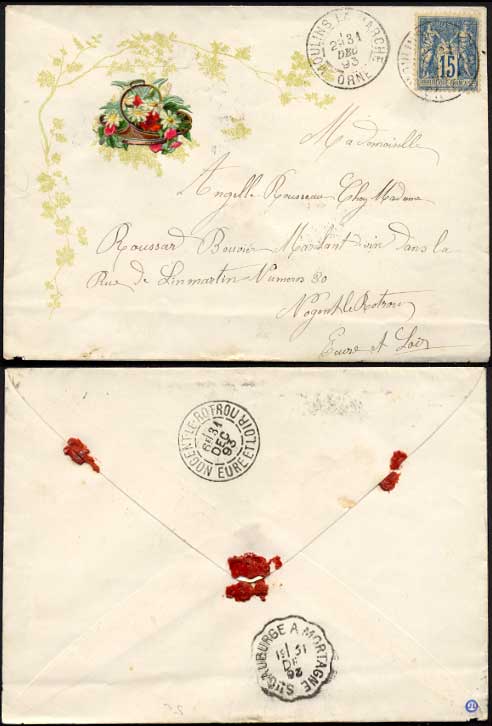 MOULINS LA MARCHE
2E 31
DEC
93
ORNE
15
Mademoiselle
Angelle Rousseau Chez Madame
Roussard Bouvier Marchant vin dans la
Rue de Linmartin Numeros 80
Nogent le Rotrou
Eure et Loir
NOGENT-LE-ROTROU
6E 31
DEC
93
EURE ET LOIR
STE GAUBURGE A MORTAGNE
31
DE
93